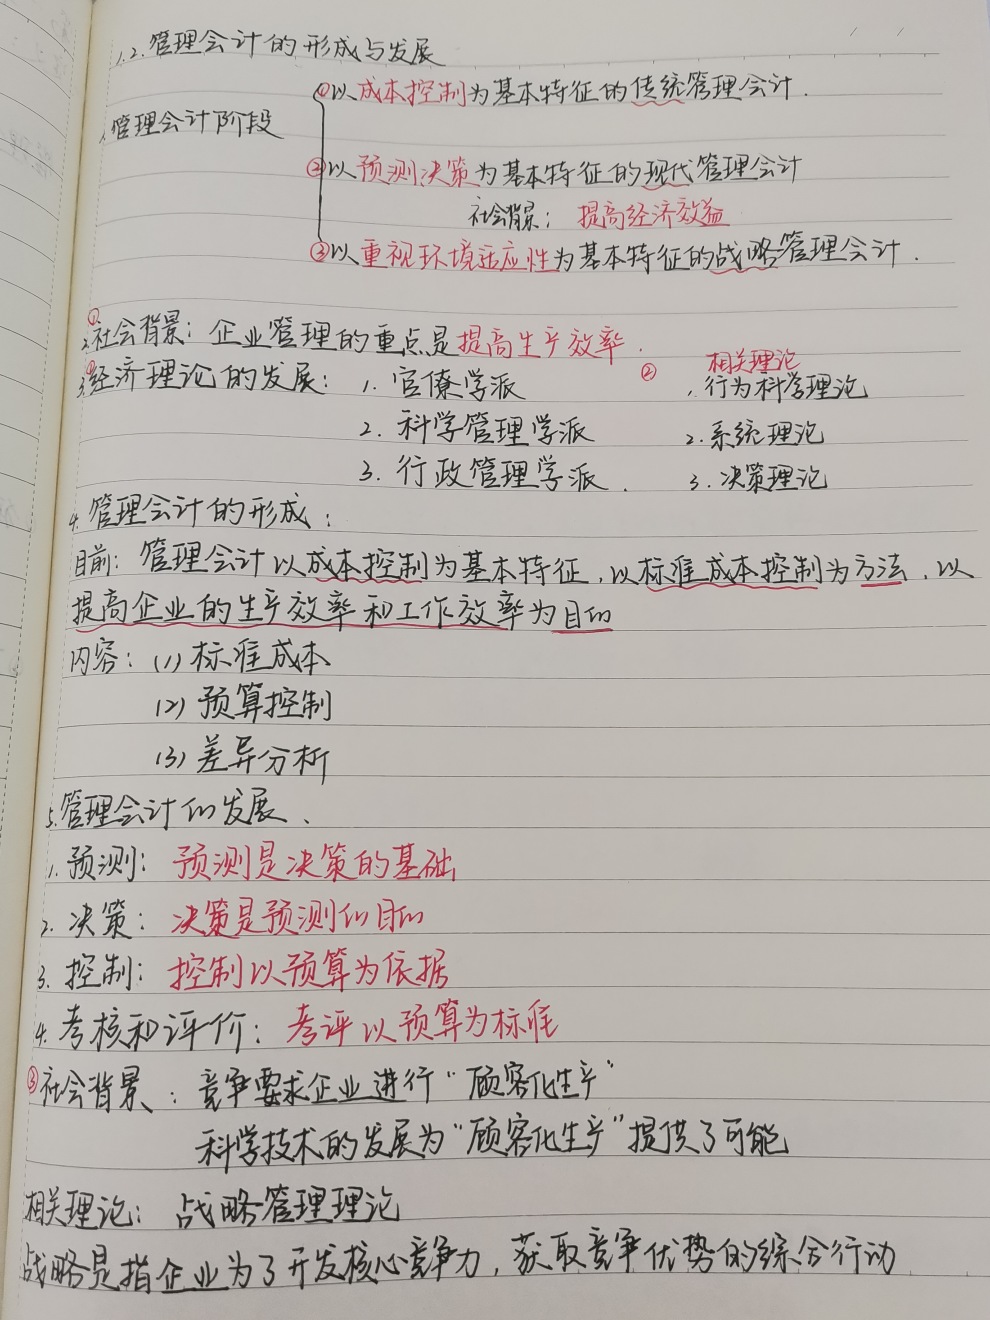 1.2.管理会计的形成与发展
①以成本控制为基本特征的传统管理会计.
1.管理会计阶段
②以预测决策为基本特征的现代管理会计
社会背景：提高经济效益
③以重视环境适应性为基本特征的战略管理会计.
①
2.社会背景：企业管理的重点是提高生产效率.
相关理论
①
3.经济理论的发展：1.官僚学派 ② 1.行为科学理论
2.科学管理学派 2.系统理论
3.行政管理学派. 3.决策理论
4.管理会计的形成：
目前：管理会计以成本控制为基本特征,以标准成本控制为方法,以
提高企业的生产效率和工作效率为目的
内容：(1)标准成本
(2)预算控制
(3)差异分析
5.管理会计的发展、
1.预测：预测是决策的基础
2.决策：决策是预测的目的
3.控制：控制以预算为依据
4.考核和评价：考评以预算为标准
③社会背景：竞争要求企业进行“顾客化生产”
科学技术的发展为“顾客化生产”提供了可能
相关理论：战略管理理论
战略是指企业为了开发核心竞争力,获取竞争优势的综合行动